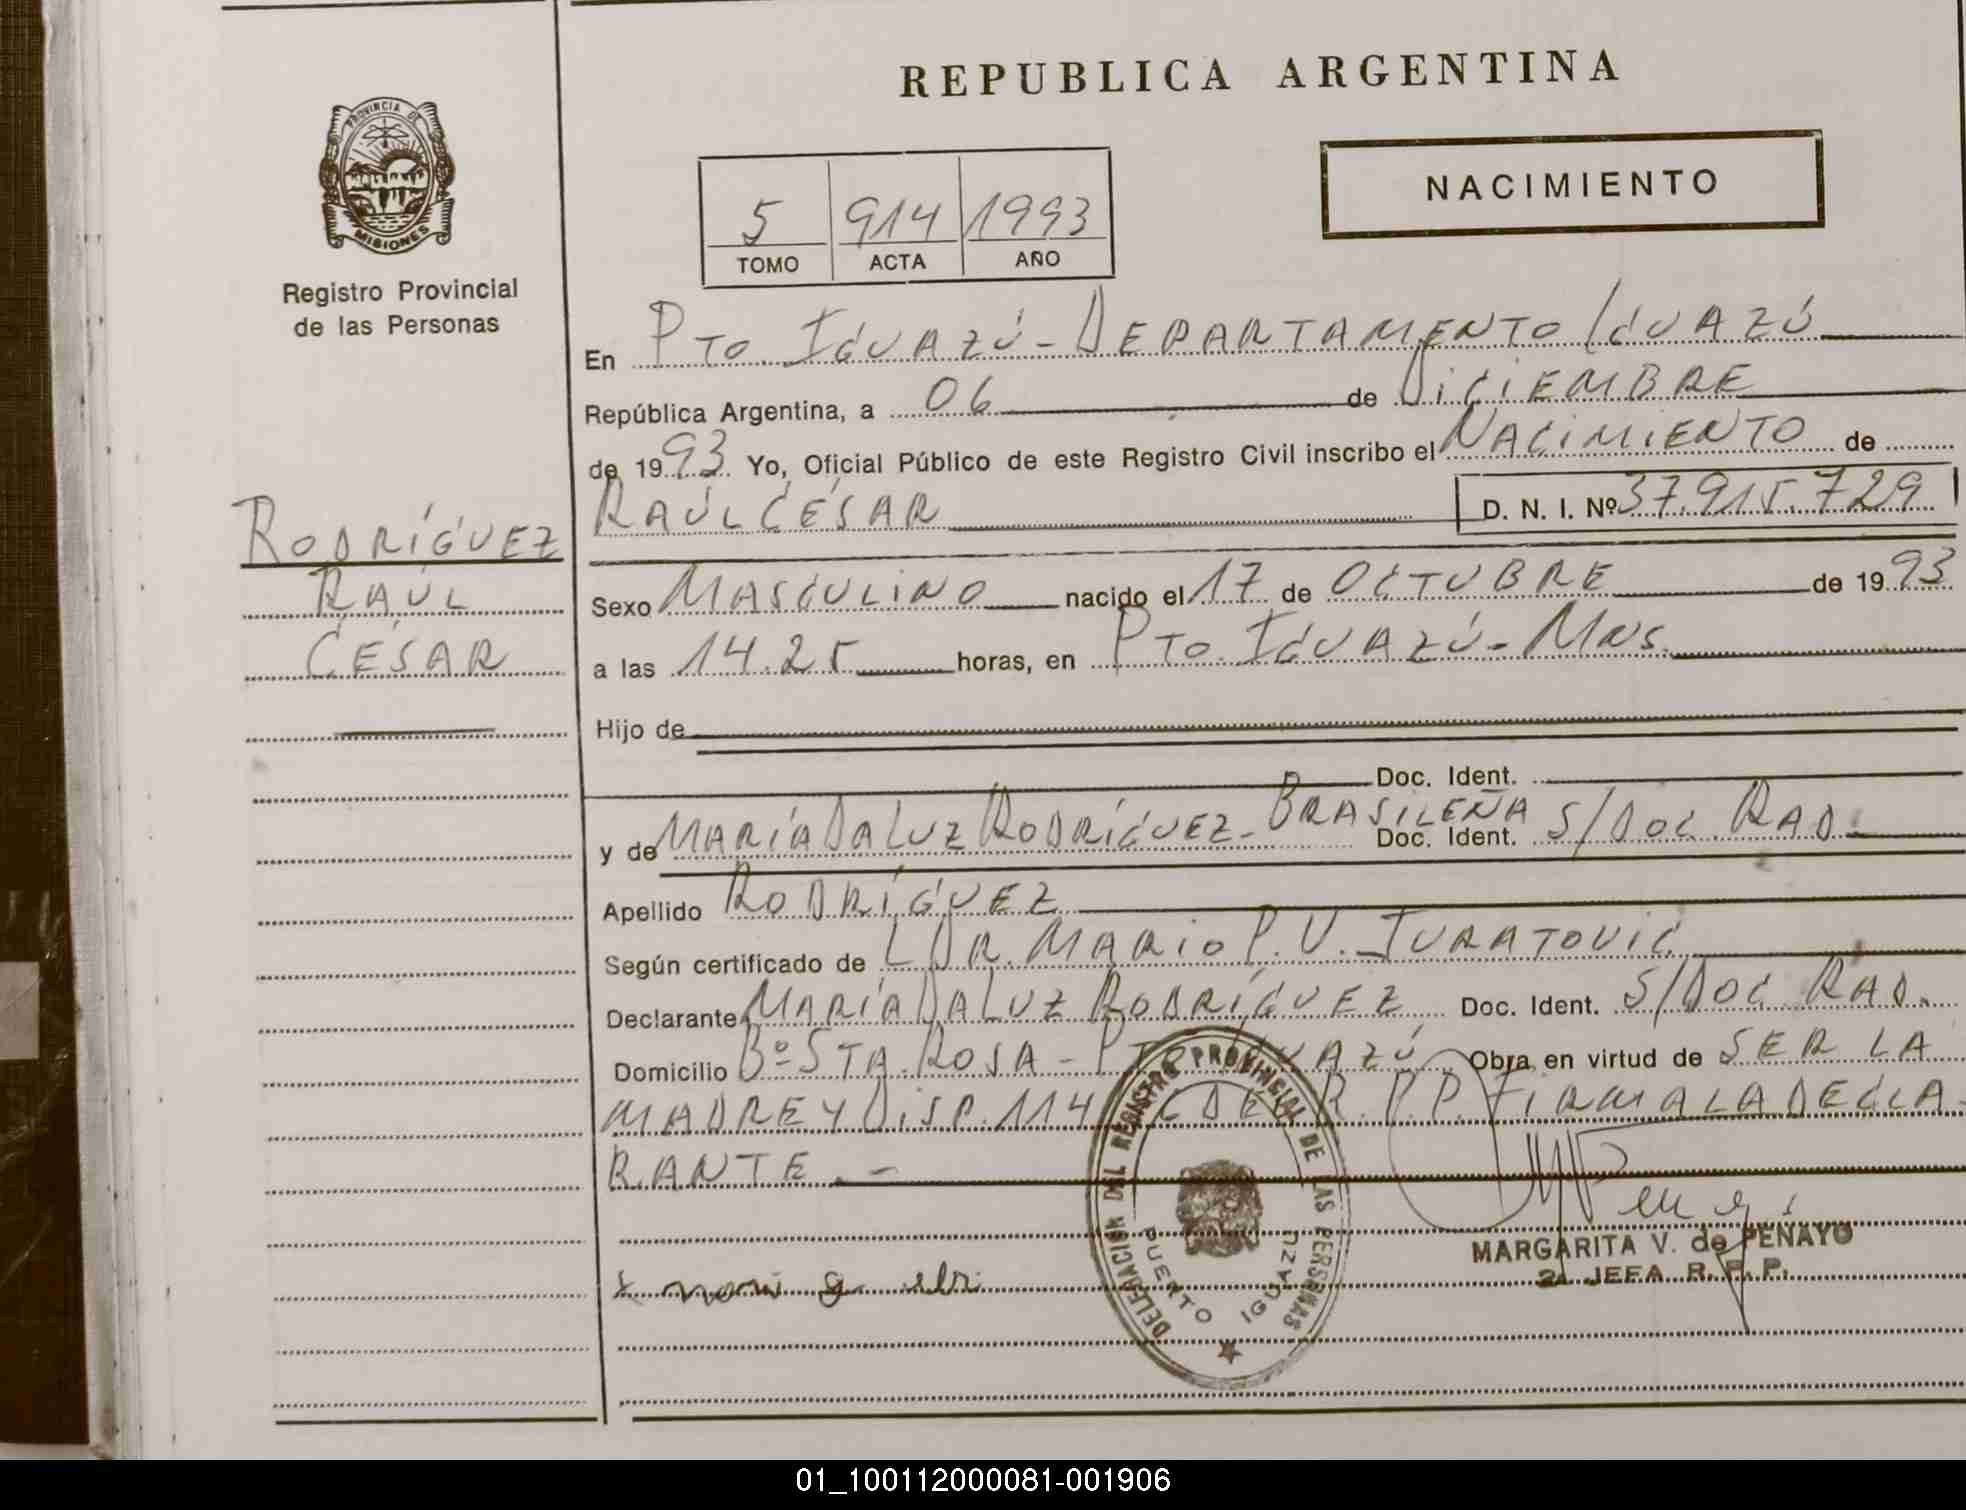 REPUBLICA ARGENTINA
PROVINCIA DE
MISIONES
Registro Provincial
de las Personas
5 914 1993
TOMO ACTA AÑO
NACIMIENTO
En Pto. Iguazú - Departamento Iguazú
República Argentina, a 06 de Diciembre
de 1993 Yo, Oficial Público de este Registro Civil inscribo el Nacimiento de
Raúl César D. N. I. Nº 37.915.729
Rodríguez
Raúl
César
Sexo Masculino nacido el 17 de Octubre de 1993
a las 14.25 horas, en Pto. Iguazú - Mns.
Hijo de
Doc. Ident.
y de María Da Luz Rodríguez - Brasileña Doc. Ident. S/Doc. Rad.
Apellido Rodríguez
Según certificado de Dr. Mario P. V.
Declarante María Da Luz Rodríguez Doc. Ident. S/Doc Rad.
Domicilio Bº Sta. Rosa - Pto. Iguazú Obra en virtud de ser la
madre y Disp. 114 del R.P.P. Firma la decla-
rante.-
DELEGACION DEL REGISTRO PROVINCIAL DE LAS PERSONAS
PUERTO IGUAZU
MARGARITA V. de PENAYO
2a JEFA R. P. P.
01_100112000081-001906